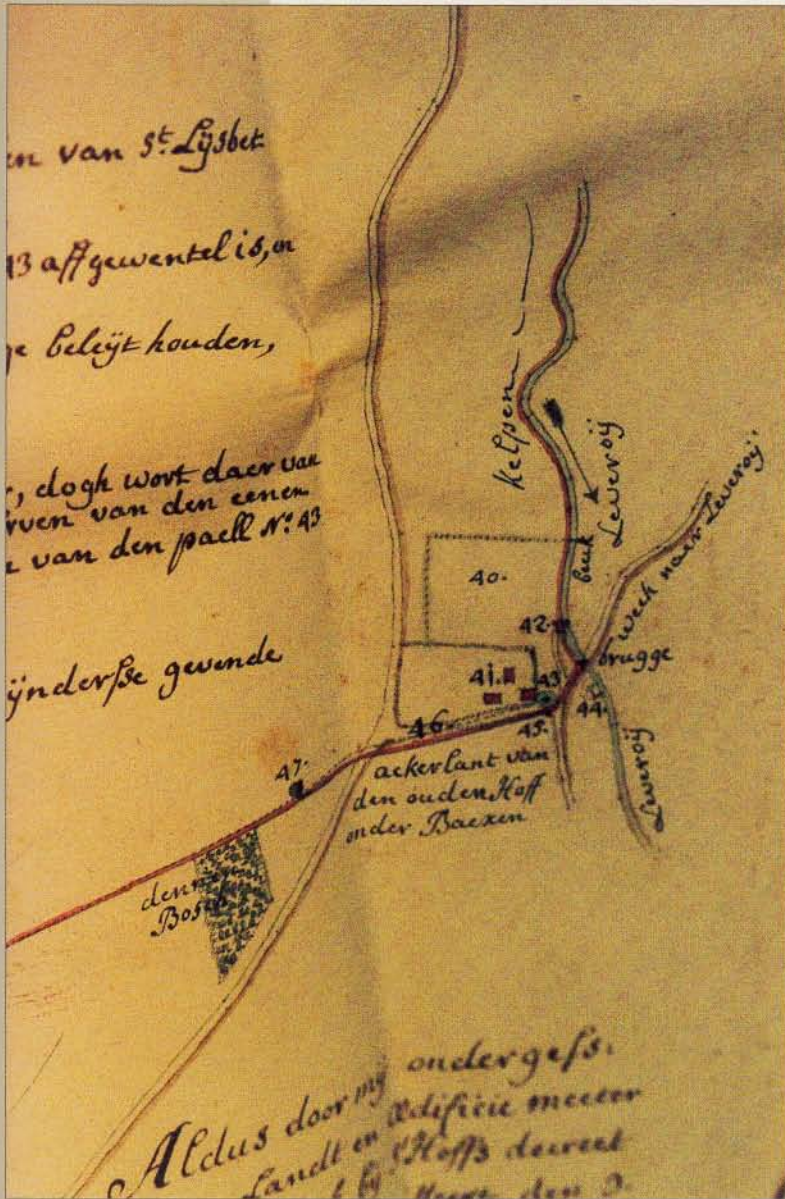 en van St. Lijsbet
13 affgewentel is, en
ge beleijt houden,
r, dogh wort daer van
rven van den eenen
n van den paell No. 43
ijnderse gevende
Kelpen
Leveroij
beek
wech naer Leveroij.
40.
42.
brugge
41.
43
44.
45.
46.
Leveroij
ackerlant van
den ouden Hoff
onder Baexen
47.
dennen
Bosch
Aldus door mij ondergess.
Landt en Edificie meeter
bij 't Hoffs decreet
den 9.